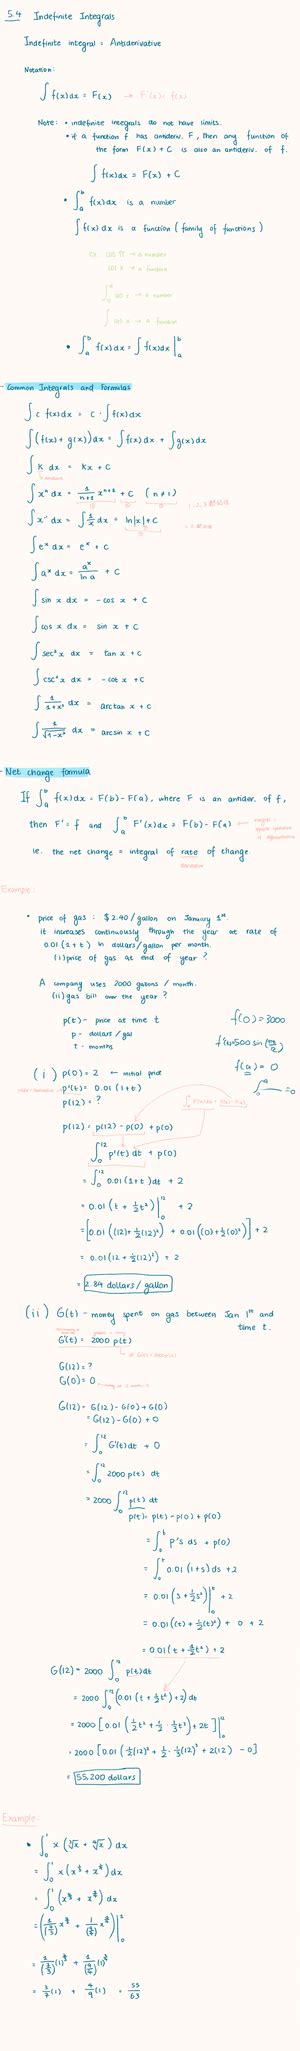 5.4 Indefinite Integrals
Indefinite integral = Antiderivative
Notation:
∫ f(x) dx = F(x) → F'(x) = f(x)
Note: • indefinite integrals do not have limits.
• if a function f has antideriv. F, then any function of
the form F(x) + C is also an antideriv. of f.
∫ f(x) dx = F(x) + C
• ∫_a^b f(x) dx is a number
∫ f(x) dx is a function (family of functions)
ex. cos π → a number
cos x → a function
cos x → a number
∫ cos x → a function
• ∫_a^b f(x) dx = ∫ f(x) dx |_a^b
- Common Integrals and Formulas
∫ c f(x) dx = c · ∫ f(x) dx
∫ (f(x) + g(x)) dx = ∫ f(x) dx + ∫ g(x) dx
∫ k dx = kx + C
∫ x^n dx = 1/(n+1) x^(n+1) + C
∫ x^-1 dx = ∫ 1/x dx = ln|x| + C
∫ e^x dx = e^x + C
∫ a^x dx = a^x / ln a + C
∫ sin x dx = - cos x + C
∫ cos x dx = sin x + C
∫ sec² x dx = tan x + C
∫ csc² x dx = - cot x + C
∫ 1/(1+x²) dx = arctan x + C
∫ 1/√(1-x²) dx = arcsin x + C
- Net change formula
If ∫_a^b f(x) dx = F(b) - F(a), where F is an antider. of f,
then F' = f and ∫_a^b F'(x) dx = F(b) - F(a)
ie. the net change = integral of rate of change
Example:
• price of gas : $2.40/gallon on January 1st
it increases continuously through the year at rate of
0.01(1+t) in dollars/gallon per month.
(i) price of gas at end of year?
A company uses 2000 gallons / month.
(ii) gas bill over the year?
p(t) - price at time t
p - dollars / gal
t - months
f(0) = 3000
f(a) = 0
(i) p(0) = 2 ← initial price
p'(t) = 0.01(1+t)
p(12) = ?
p(12) = p(12) - p(0) + p(0)
∫_0^12 p'(t) dt + p(0)
= ∫_0^12 0.01(1+t) dt + 2
= 0.01 (t + ½t²) |_0^12 + 2
= [0.01 ((12) + ½(12)²) + 0.01 ((0) + ½(0)²)] + 2
= 0.01 (12 + ½(12)²) + 2
= 2.84 dollars / gallon
(ii) G(t) - money spent on gas between Jan 1st and
time t.
G'(t) = 2000 p(t)
G(12) = ?
G(0) = 0
G(12) = G(12) - G(0) + G(0)
= G(12) - G(0) + 0
= ∫_0^12 G'(t) dt + 0
= ∫_0^12 2000 p(t) dt
= 2000 ∫_0^12 p(t) dt
p(t) = p(t) - p(0) + p(0)
= ∫_0^t p's ds + p(0)
= ∫_0^t 0.01 (1+s) ds + 2
= 0.01 (s + ½s²) |_0^t + 2
= 0.01 ((t) + ½(t)²) + 0 + 2
= 0.01 (t + ½t²) + 2
G(12) = 2000 ∫_0^12 p(t) dt
= 2000 ∫_0^12 (0.01 (t + ½t²) + 2) dt
= 2000 [0.01 (½t² + ½ · ⅓t³) + 2t] |_0^12
= 2000 [0.01 (½(12)² + ½ · ⅓(12)³ + 2(12) - 0]
= 55,200 dollars
Example:
• ∫_0^1 x (∛x + ∜x) dx
= ∫_0^1 x (x^(1/3) + x^(1/4)) dx
= ∫_0^1 (x^(4/3) + x^(5/4)) dx
= 3/7 (1) + 4/9 (1) = 55/63